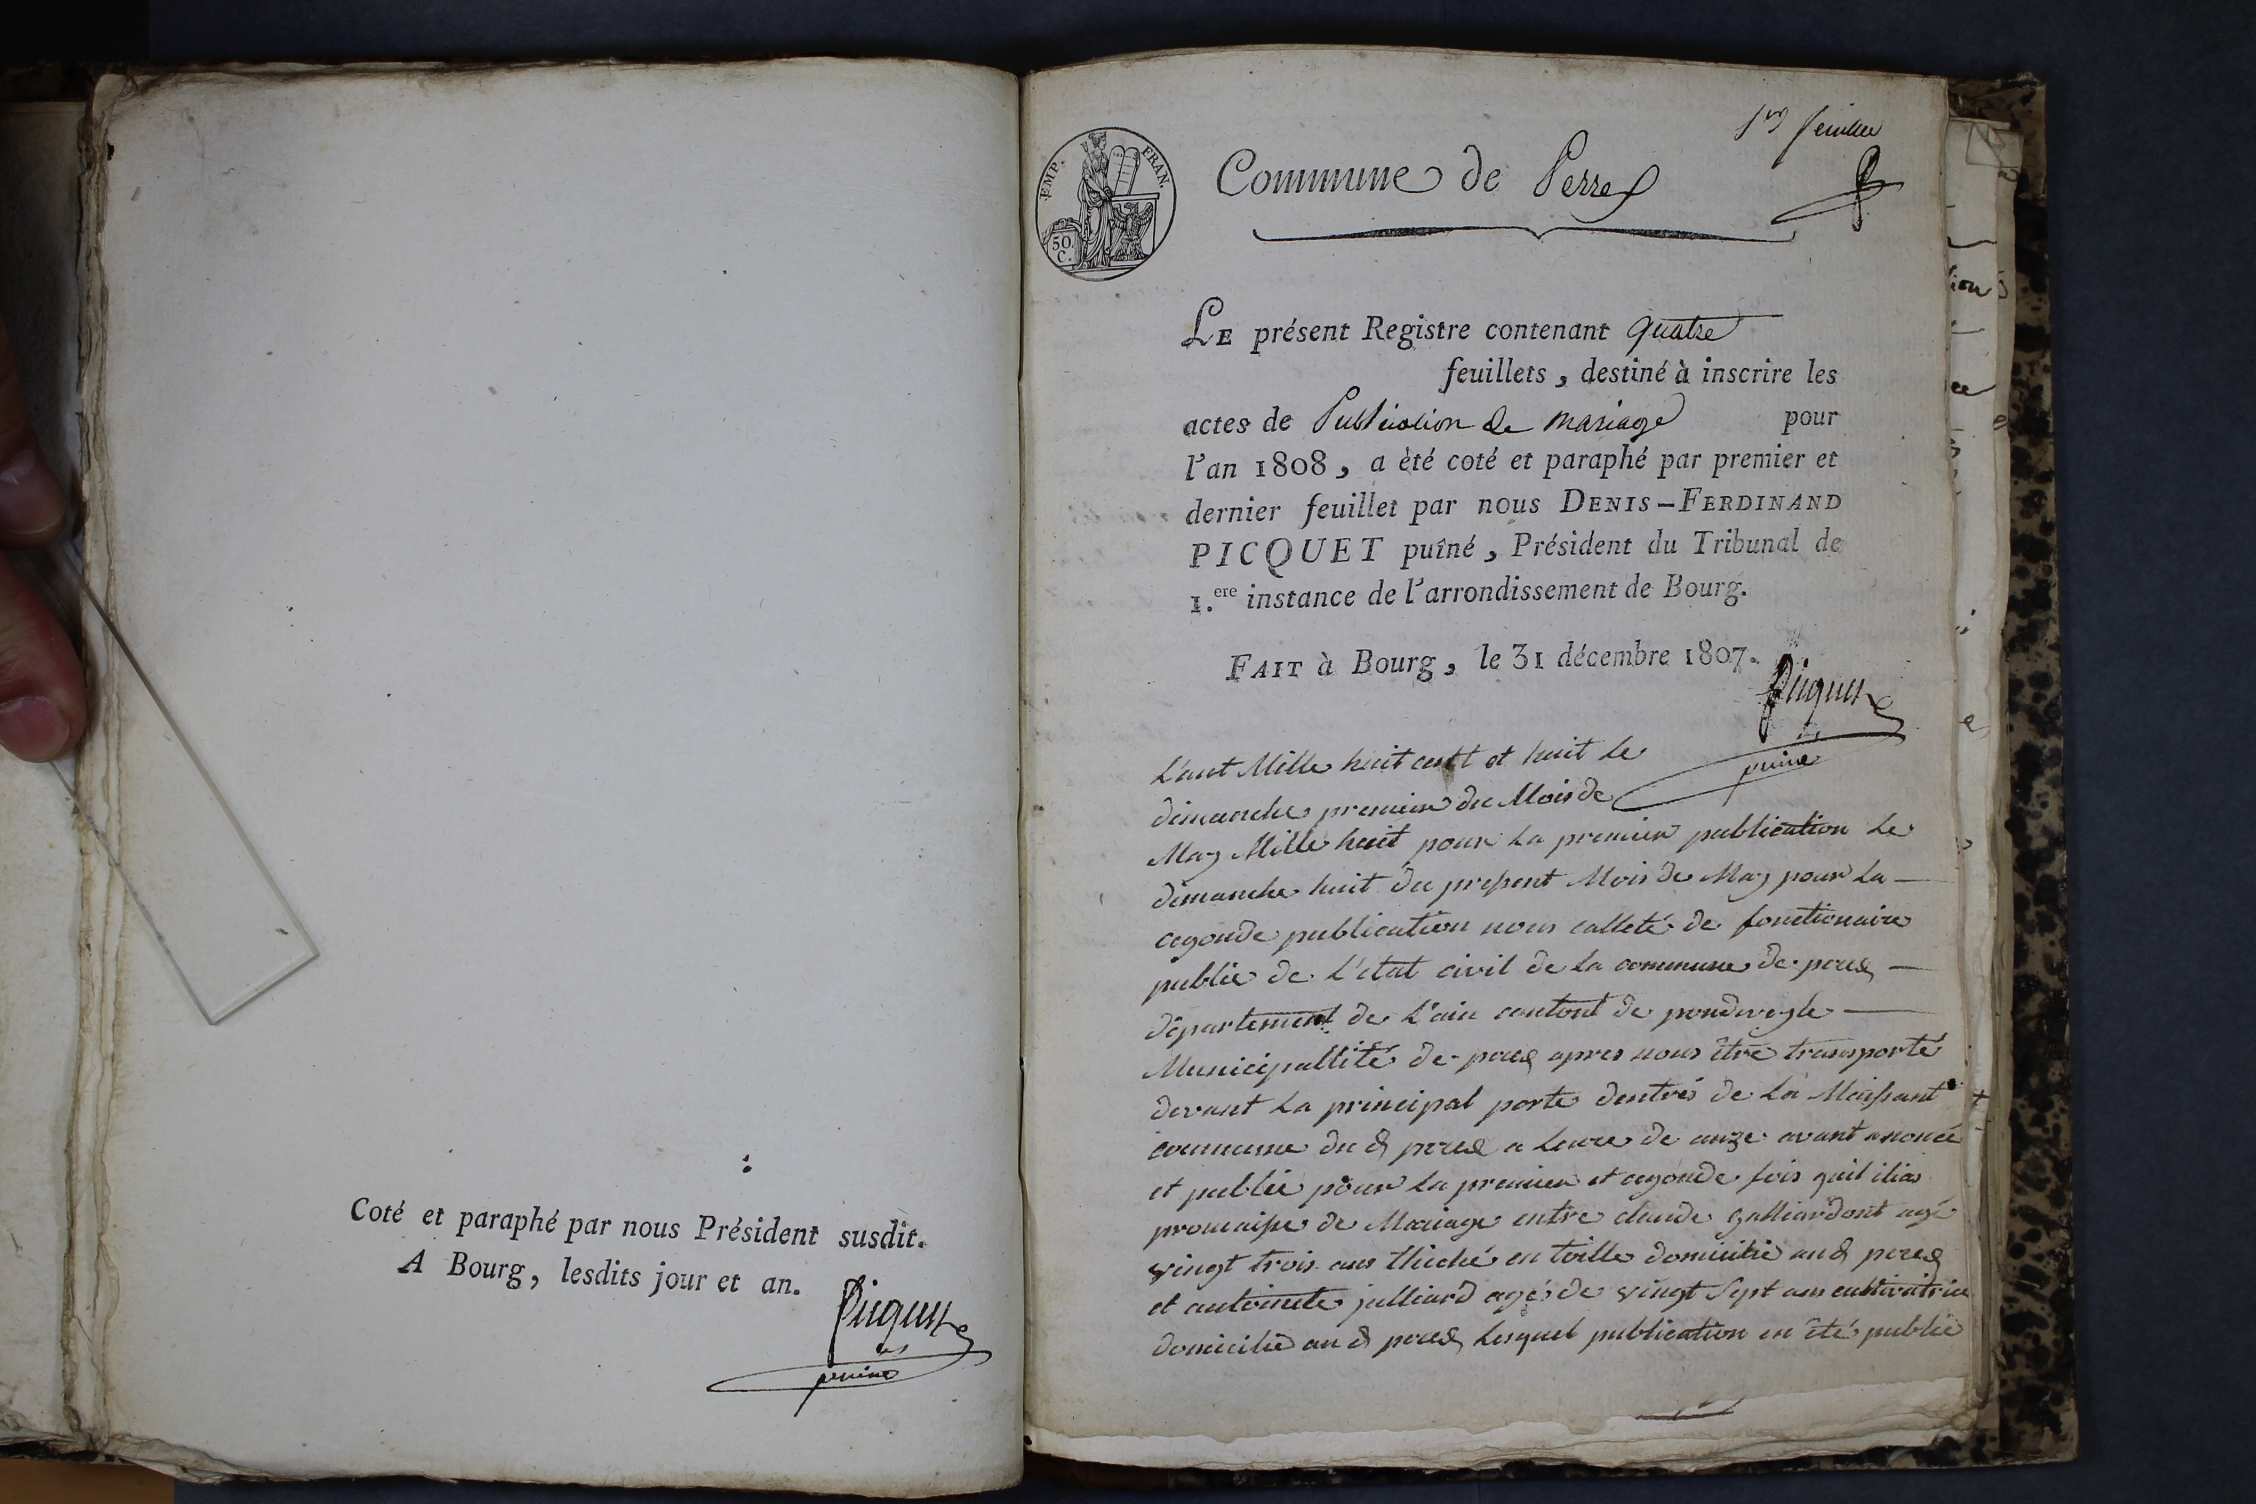 Coté et paraphé par nous Président susdit.
A Bourg, lesdits jour et an.
Picquet
puiné
1er feuillet
EMP. FRAN.
50.
C.
Commune de Perrex
LE présent Registre contenant quatre
feuillets, destiné à inscrire les
actes de Publication de mariage pour
l'an 1808, a èté coté et paraphé par premier et
dernier feuillet par nous DENIS-FERDINAND
PICQUET puîné, Président du Tribunal de
1.ere instance de l'arrondissement de Bourg.
FAIT à Bourg, le 31 décembre 1807.
Picquet
puiné
L'ant Mille huit centt et huit le
dimanche premier du Mois de
May Mille huit pour la premier publication le
dimanche huit du present Mois de May pour la
cegonde publication nous calleté de fonctionaire
public de L'etat civil de la commune de perex
département de L'ain cantont de pondevegle
Municipallité de perex apres nous être transporté
devant la principal porte dentré de la Maissant
commune du d perex a heure de onze avant anoncé
et publié pour la premier et cegonde fois quil ilias
promaisse de Mariage entre claude galliardont agé
vingt trois ans thiché en toille domicilié au d perex
et antoinete julliard agé de vingt sept ans cultivatrice
domicilié au d perex lesquel publication on été publié